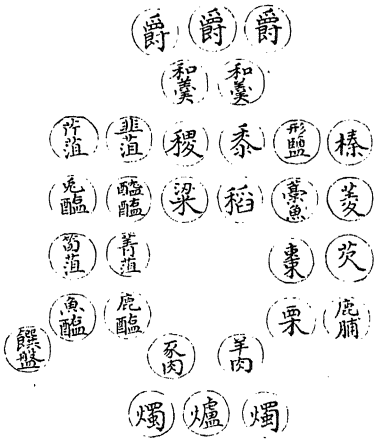 爵 爵 爵
和羹 和羹
芹菹 韭菹 稷 黍 形鹽 榛
兎醢 醓醢 粱 稻 藁魚 菱
筍菹 菁菹 棗 芡
魚醢 鹿醢 栗 鹿脯
饌盤 豕肉 羊肉
燭 爐 燭